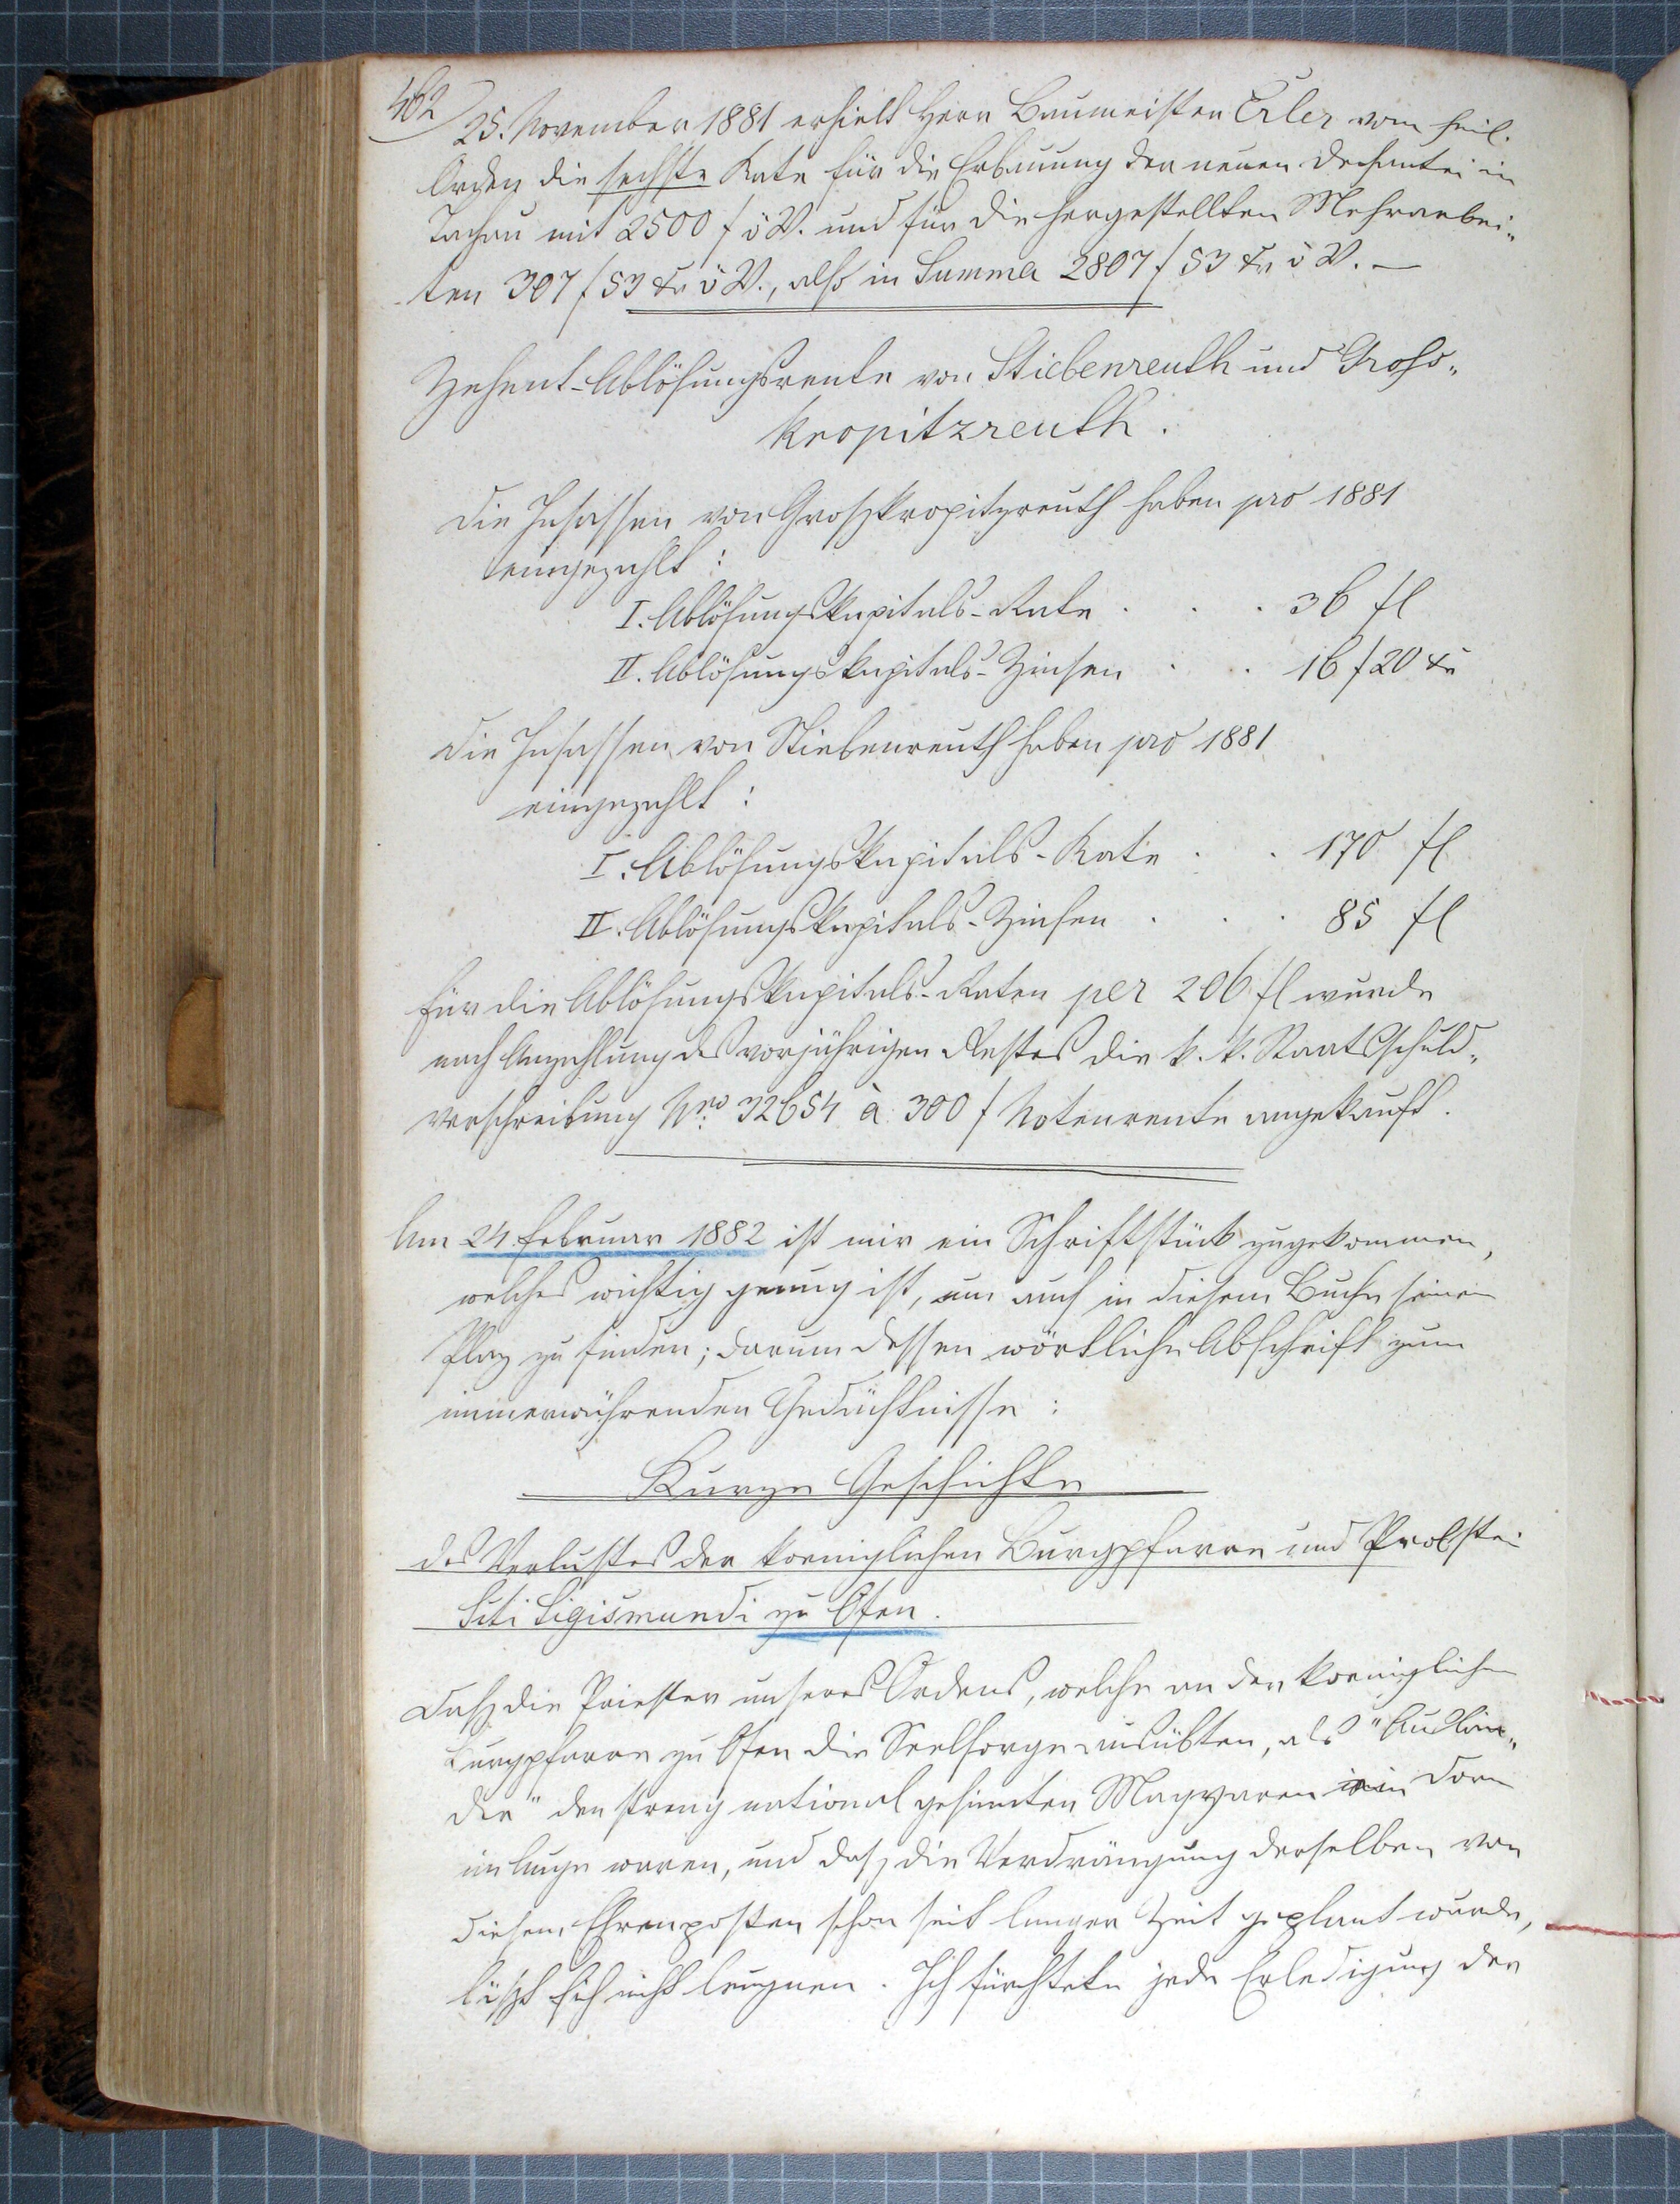 462
25. November 1881 erhielt Herr Baumeister Erler vom heil.
Orden die sechste Rate für die Erbauung der neuen Dechantei in
Tachau mit 2500 f ö W. und für die hergestellten Mehrarbei„
ten 307 f 53 Xr ö W., also in Summa 2807 f 53 Xr ö W. —
Zehent-Ablösungsrente von Stiebenreuth und Gross„
kropitzreuth.
Die Insassen von Groszkropitzreuth haben pro 1881
eingezahlt:
I. Ablösungskapitals-Rate . . . 36 fl
II. Ablösungskapitals-Zinsen . . 16 f 20 Xr
Die Insassen von Stiebenreuth haben pro 1881
eingezahlt:
I. Ablösungskapitals-Rate . . 170 fl
II. Ablösungskapitals-Zinsen . . . 85 fl
Für die Ablösungskapitals-Raten per 206 fl wurde
nach Anzahlung des vorjährigen Restes die k. k. Staatsschuld„
verschreibung Nro 32654 à 300 f Notenrente angekauft.
Am 24 Februar 1882 ist mir ein Schriftstück zugekommen,
welches wichtig genug ist, um auch in diesem Buche seinen
Plaz zu finden; darum dessen wörtliche Abschrift zum
immerwährenden Gedächtnisse:
Kurze Geschichte
des Verlustes der koeniglichen Burgpfarre und Probstei
Scti Sigismundi zu Ofen.
Dasz die Priester unseres Ordens, welche an der koeniglichen
Burgpfarre zu Ofen die Seelsorge ausübten, als "Auslän„
der" den streng national gesinnten Magyaren ein Dorn
im Auge waren, und dasz die Verdrängung derselben von
diesem Ehrenposten schon seit langer Zeit geplant wurde,
läszt sich nicht leugnen. Ich fürchtete jede Erledigung der